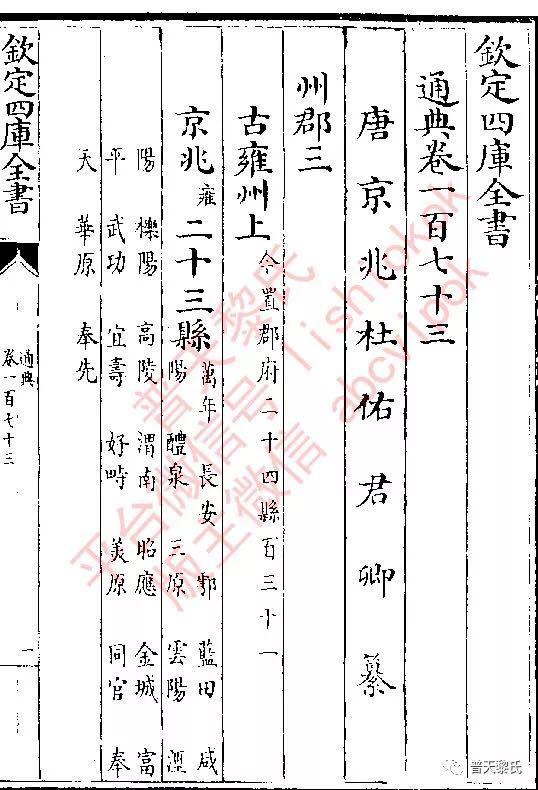 欽定四庫全書
通典卷一百七十三
唐京兆杜佑君卿纂
州郡三
古雍州上 今置郡府二十四縣百三十一
京兆雍二十三縣 萬年 長安 鄠 藍田 咸
陽 醴泉 三原 雲陽 涇
陽 櫟陽 高陵 渭南 昭應 金城 富
平 武功 宜壽 好畤 美原 同官 奉
天 華原 奉先
欽定四庫全書
通典
卷一百七十三
一
普天黎氏
平台微信号
版主微信
普天黎氏